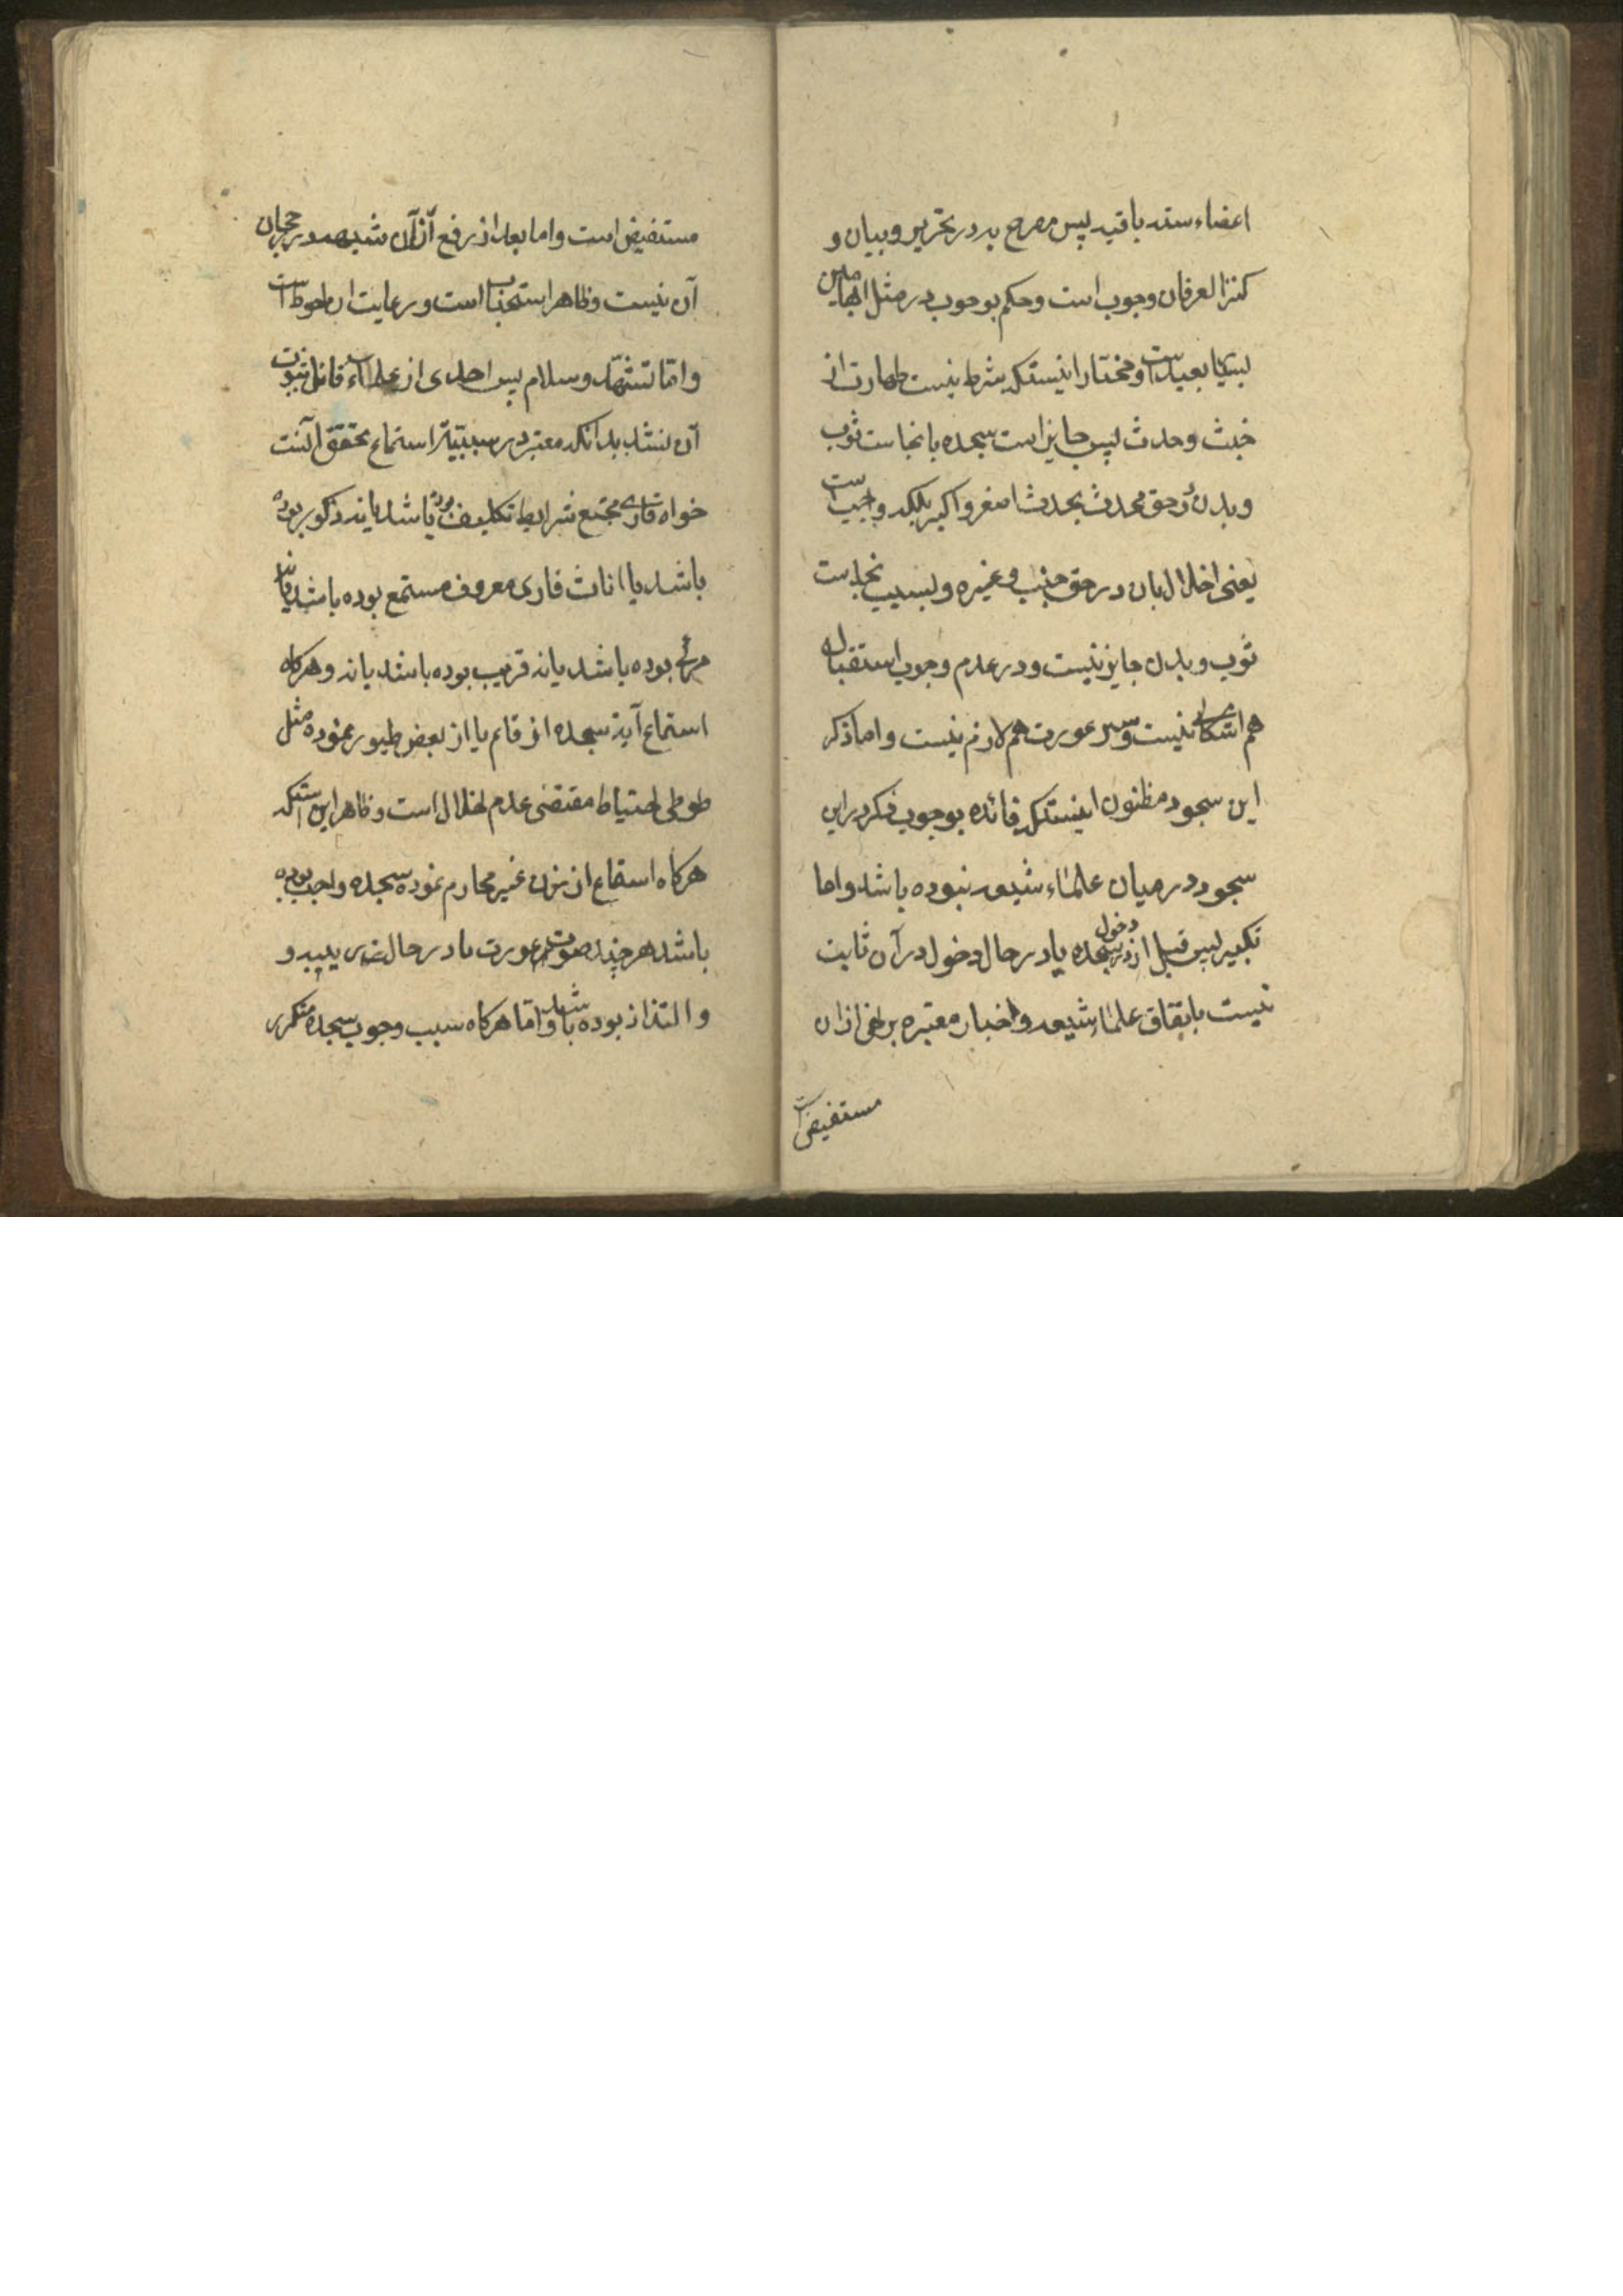 اعضاء سته باقیه پس مصرح به در تحریر و بیان و
کنز العرفان وجوب است و حکم بوجوب در مثل ابهامین
بسیار بعید است و مختار اینستکه شرط نیست طهارت از
خبث و حدث پس جایز است سجده با نجاست ثوب
و بدن و در حق محدث بحدث اصغر و اکبر بلکه واجبست
یعنی اخلال بان در حق جنب و غیره و بسبب نجاست
ثوب و بدن جایز نیست و در عدم وجوب استقبال
هم اشکالی نیست و ستر عورت هم لازم نیست و اما ذکر
این سجود مظنون اینستکه فائده بوجوب ذکر در این
سجود در میان علماء شیعه نبوده باشد و اما
تکبیر پس قبل از دخول در سجده یا در حال دخول در آن ثابت
نیست باتفاق علماء شیعه و اخبار معتبره بر نفی ان
مستفیض است
مستفیض است و اما بعد از رفع از آن شبهه در رجحان
آن نیست و ظاهر استحباب است و رعایت ان احوط است
و امّا تشهّد و سلام پس احدی از علماء قائل بثبوت
آن نشد بدانکه معتبر در سببیّة استماع تحقق آنست
خواه قاری مجتمع شرایط تکلیف بوده باشد یا نه ذکور بوده
باشد یا اناث قاری معروف مستمع بوده باشد یا نه
مرئی بوده باشد یا نه قریب بوده باشد یا نه و هرکاه
استماع آیه سجده از قایم یا از بعض طیور نموده مثل
طوطی احتیاط مقتضی عدم اخلال است و ظاهر این استکه
هرکاه استماع از زن غیر محارم نموده سجده واجب بوده
باشد هر چند صوت عورت یا در حال
و التذاذ بوده باشد و امّا هرکاه سبب وجوب سجده متکرر